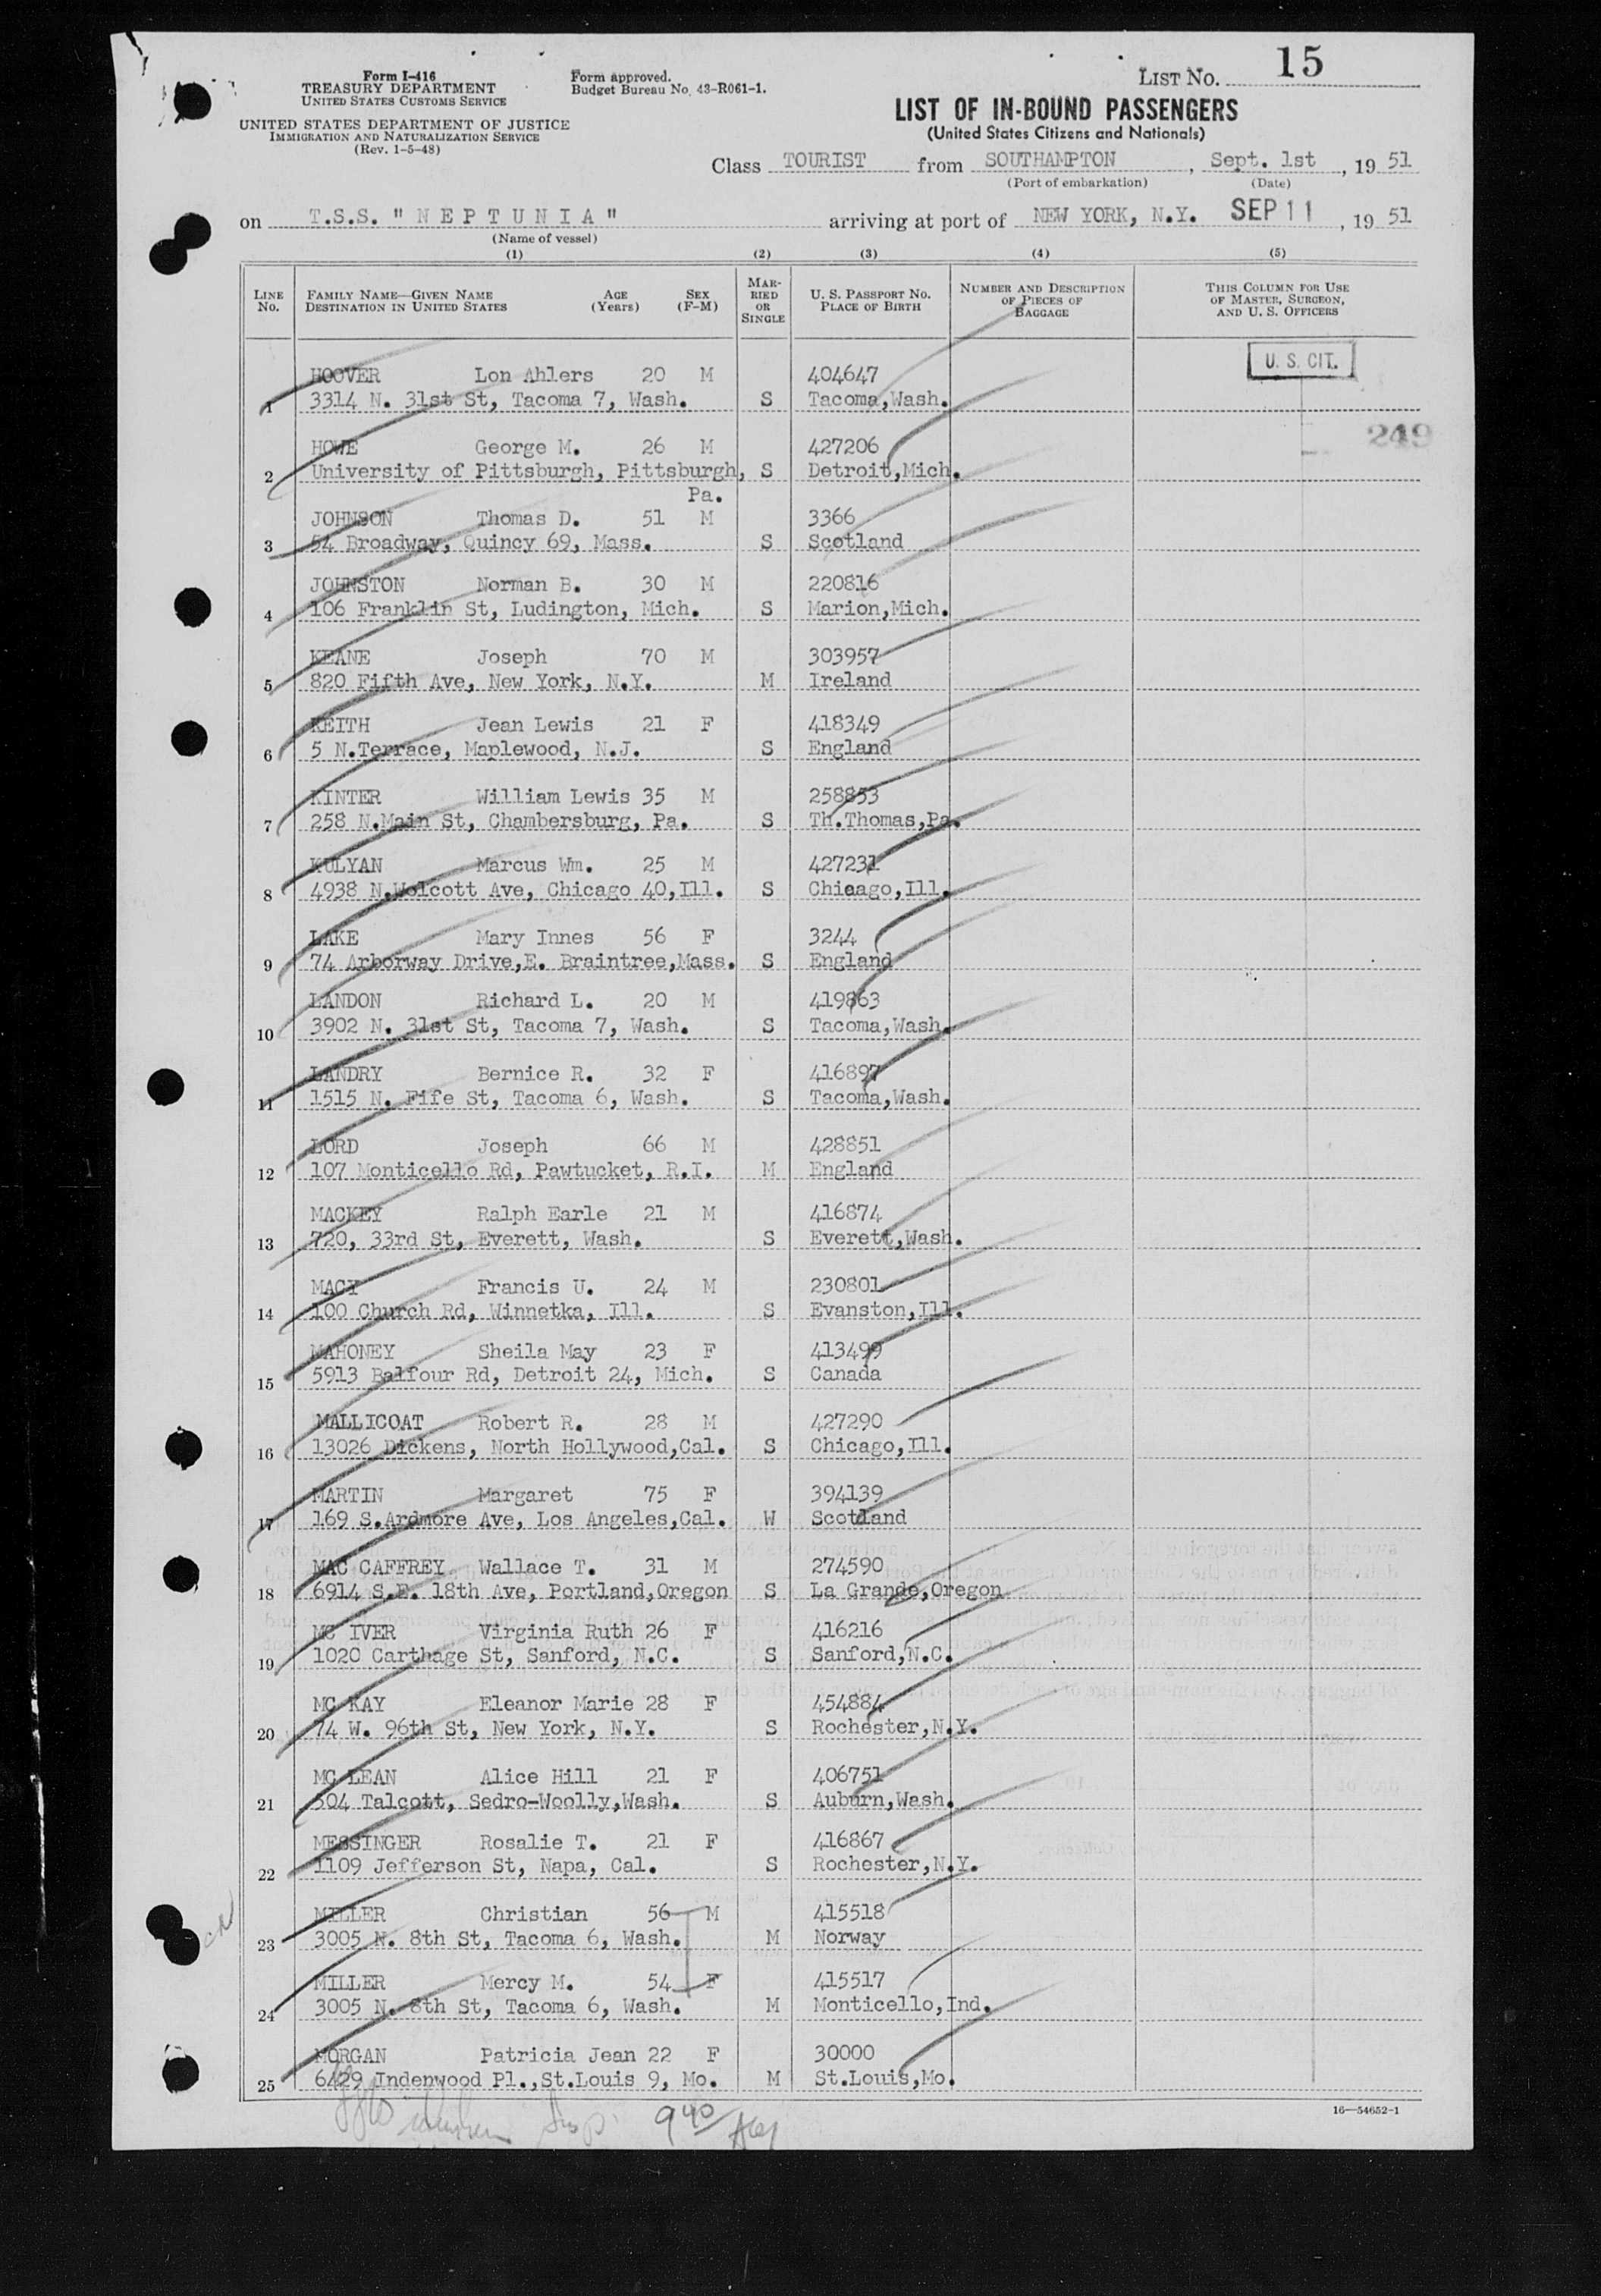 Form I-416
TREASURY DEPARTMENT
UNITED STATES CUSTOMS SERVICE
UNITED STATES DEPARTMENT OF JUSTICE
IMMIGRATION AND NATURALIZATION SERVICE
(Rev. 1-5-48)
Form approved.
Budget Bureau No. 43-R061-1.
LIST NO. 15
LIST OF IN-BOUND PASSENGERS
(United States Citizens and Nationals)
Class TOURIST from SOUTHAMPTON, Sept. 1st, 19 51
(Port of embarkation) (Date)
on T.S.S. " N E P T U N I A " arriving at port of NEW YORK, N.Y. SEP 11, 19 51
(Name of vessel)
(1) (2) (3) (4) (5)
LINE NO. FAMILY NAME—GIVEN NAME DESTINATION IN UNITED STATES AGE (Years) SEX (F-M) MARRIED OR SINGLE U. S. PASSPORT NO. PLACE OF BIRTH NUMBER AND DESCRIPTION OF PIECES OF BAGGAGE THIS COLUMN FOR USE OF MASTER, SURGEON, AND U. S. OFFICERS
U. S. CIT.
HOOVER Lon Ahlers 20 M 404647
1 3314 N. 31st St, Tacoma 7, Wash. S Tacoma,Wash.
249
HOWE George M. 26 M 427206
2 University of Pittsburgh, Pittsburgh, S Detroit,Mich.
Pa.
JOHNSON Thomas D. 51 M 3366
3 54 Broadway, Quincy 69, Mass. S Scotland
JOHNSTON Norman B. 30 M 220816
4 106 Franklin St, Ludington, Mich. S Marion,Mich.
KEANE Joseph 70 M 303957
5 820 Fifth Ave, New York, N.Y. M Ireland
KEITH Jean Lewis 21 F 418349
6 5 N.Terrace, Maplewood, N.J. S England
KINTER William Lewis 35 M 258853
7 258 N.Main St, Chambersburg, Pa. S Th.Thomas,Pa.
KULYAN Marcus Wm. 25 M 427231
8 4938 N.Wolcott Ave, Chicago 40,Ill. S Chicago,Ill.
LAKE Mary Innes 56 F 3244
9 74 Arborway Drive,E. Braintree,Mass. S England
LANDON Richard L. 20 M 419863
10 3902 N. 31st St, Tacoma 7, Wash. S Tacoma,Wash.
LANDRY Bernice R. 32 F 416897
11 1515 N. Fife St, Tacoma 6, Wash. S Tacoma,Wash.
LORD Joseph 66 M 428851
12 107 Monticello Rd, Pawtucket, R.I. M England
MACKEY Ralph Earle 21 M 416874
13 720, 33rd St, Everett, Wash. S Everett,Wash.
MACY Francis U. 24 M 230801
14 100 Church Rd, Winnetka, Ill. S Evanston,Ill.
MAHONEY Sheila May 23 F 413499
15 5913 Balfour Rd, Detroit 24, Mich. S Canada
MALLICOAT Robert R. 28 M 427290
16 13026 Dickens, North Hollywood,Cal. S Chicago,Ill.
MARTIN Margaret 75 F 394139
17 169 S.Ardmore Ave, Los Angeles,Cal. W Scotland
MAC CAFFREY Wallace T. 31 M 274590
18 6914 S.E. 18th Ave, Portland,Oregon S La Grande,Oregon
MC IVER Virginia Ruth 26 F 416216
19 1020 Carthage St, Sanford, N.C. S Sanford,N.C.
MC KAY Eleanor Marie 28 F 454884
20 74 W. 96th St, New York, N.Y. S Rochester,N.Y.
MC LEAN Alice Hill 21 F 406751
21 504 Talcott, Sedro-Woolly,Wash. S Auburn,Wash.
MESSINGER Rosalie T. 21 F 416867
22 1109 Jefferson St, Napa, Cal. S Rochester,N.Y.
MILLER Christian 56 M 415518
23 3005 N. 8th St, Tacoma 6, Wash. M Norway
MILLER Mercy M. 54 F 415517
24 3005 N. 8th St, Tacoma 6, Wash. M Monticello,Ind.
MORGAN Patricia Jean 22 F 30000
25 6429 Indenwood Pl.,St.Louis 9, Mo. M St.Louis,Mo.
940
16—54652-1